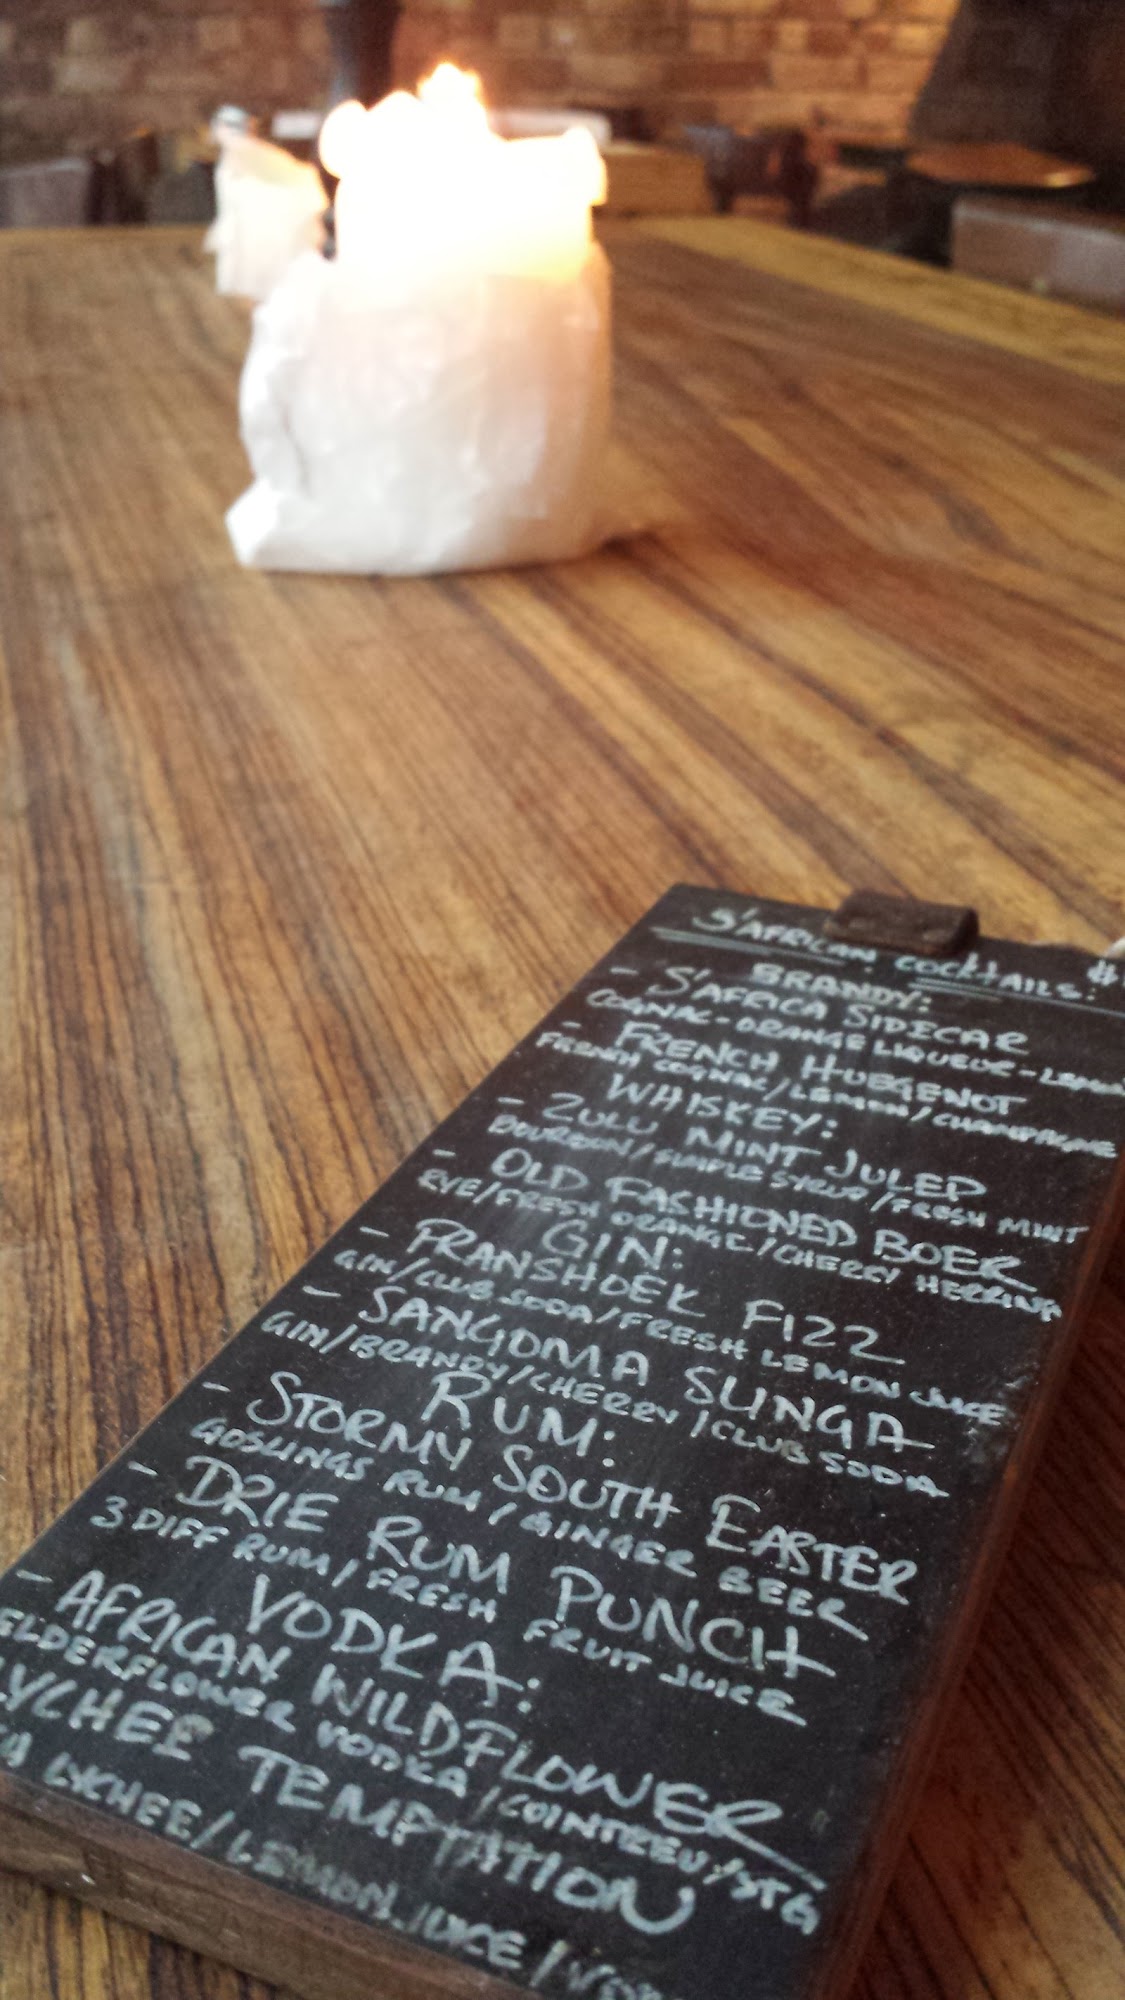 S'AFRICAN COCKTAILS:
BRANDY:
- S'AFRICA SIDECAR
COGNAC-ORANGE LIQUEUR-LEMON
- FRENCH HUEGENOT
FRENCH COGNAC/LEMON/CHAMPAGNE
WHISKEY:
- ZULU MINT JULEP
BOURBON/SIMPLE SYRUP/FRESH MINT
- OLD FASHIONED BOER
RYE/FRESH ORANGE/CHERRY HERRING
GIN:
- FRANSHOEK FIZZ
GIN/CLUB SODA/FRESH LEMON JUICE
- SANGOMA SLINGA
GIN/BRANDY/CHERRY/CLUB SODA
RUM:
- STORMY SOUTH EASTER
GOSLINGS RUM/GINGER BEER
- DRIE RUM PUNCH
3 DIFF RUM/FRESH FRUIT JUICE
VODKA:
- AFRICAN WILDFLOWER
ELDERFLOWER VODKA/COINTREU/STG
LYCHEE TEMPTATION
LYCHEE/LEMON JUICE/